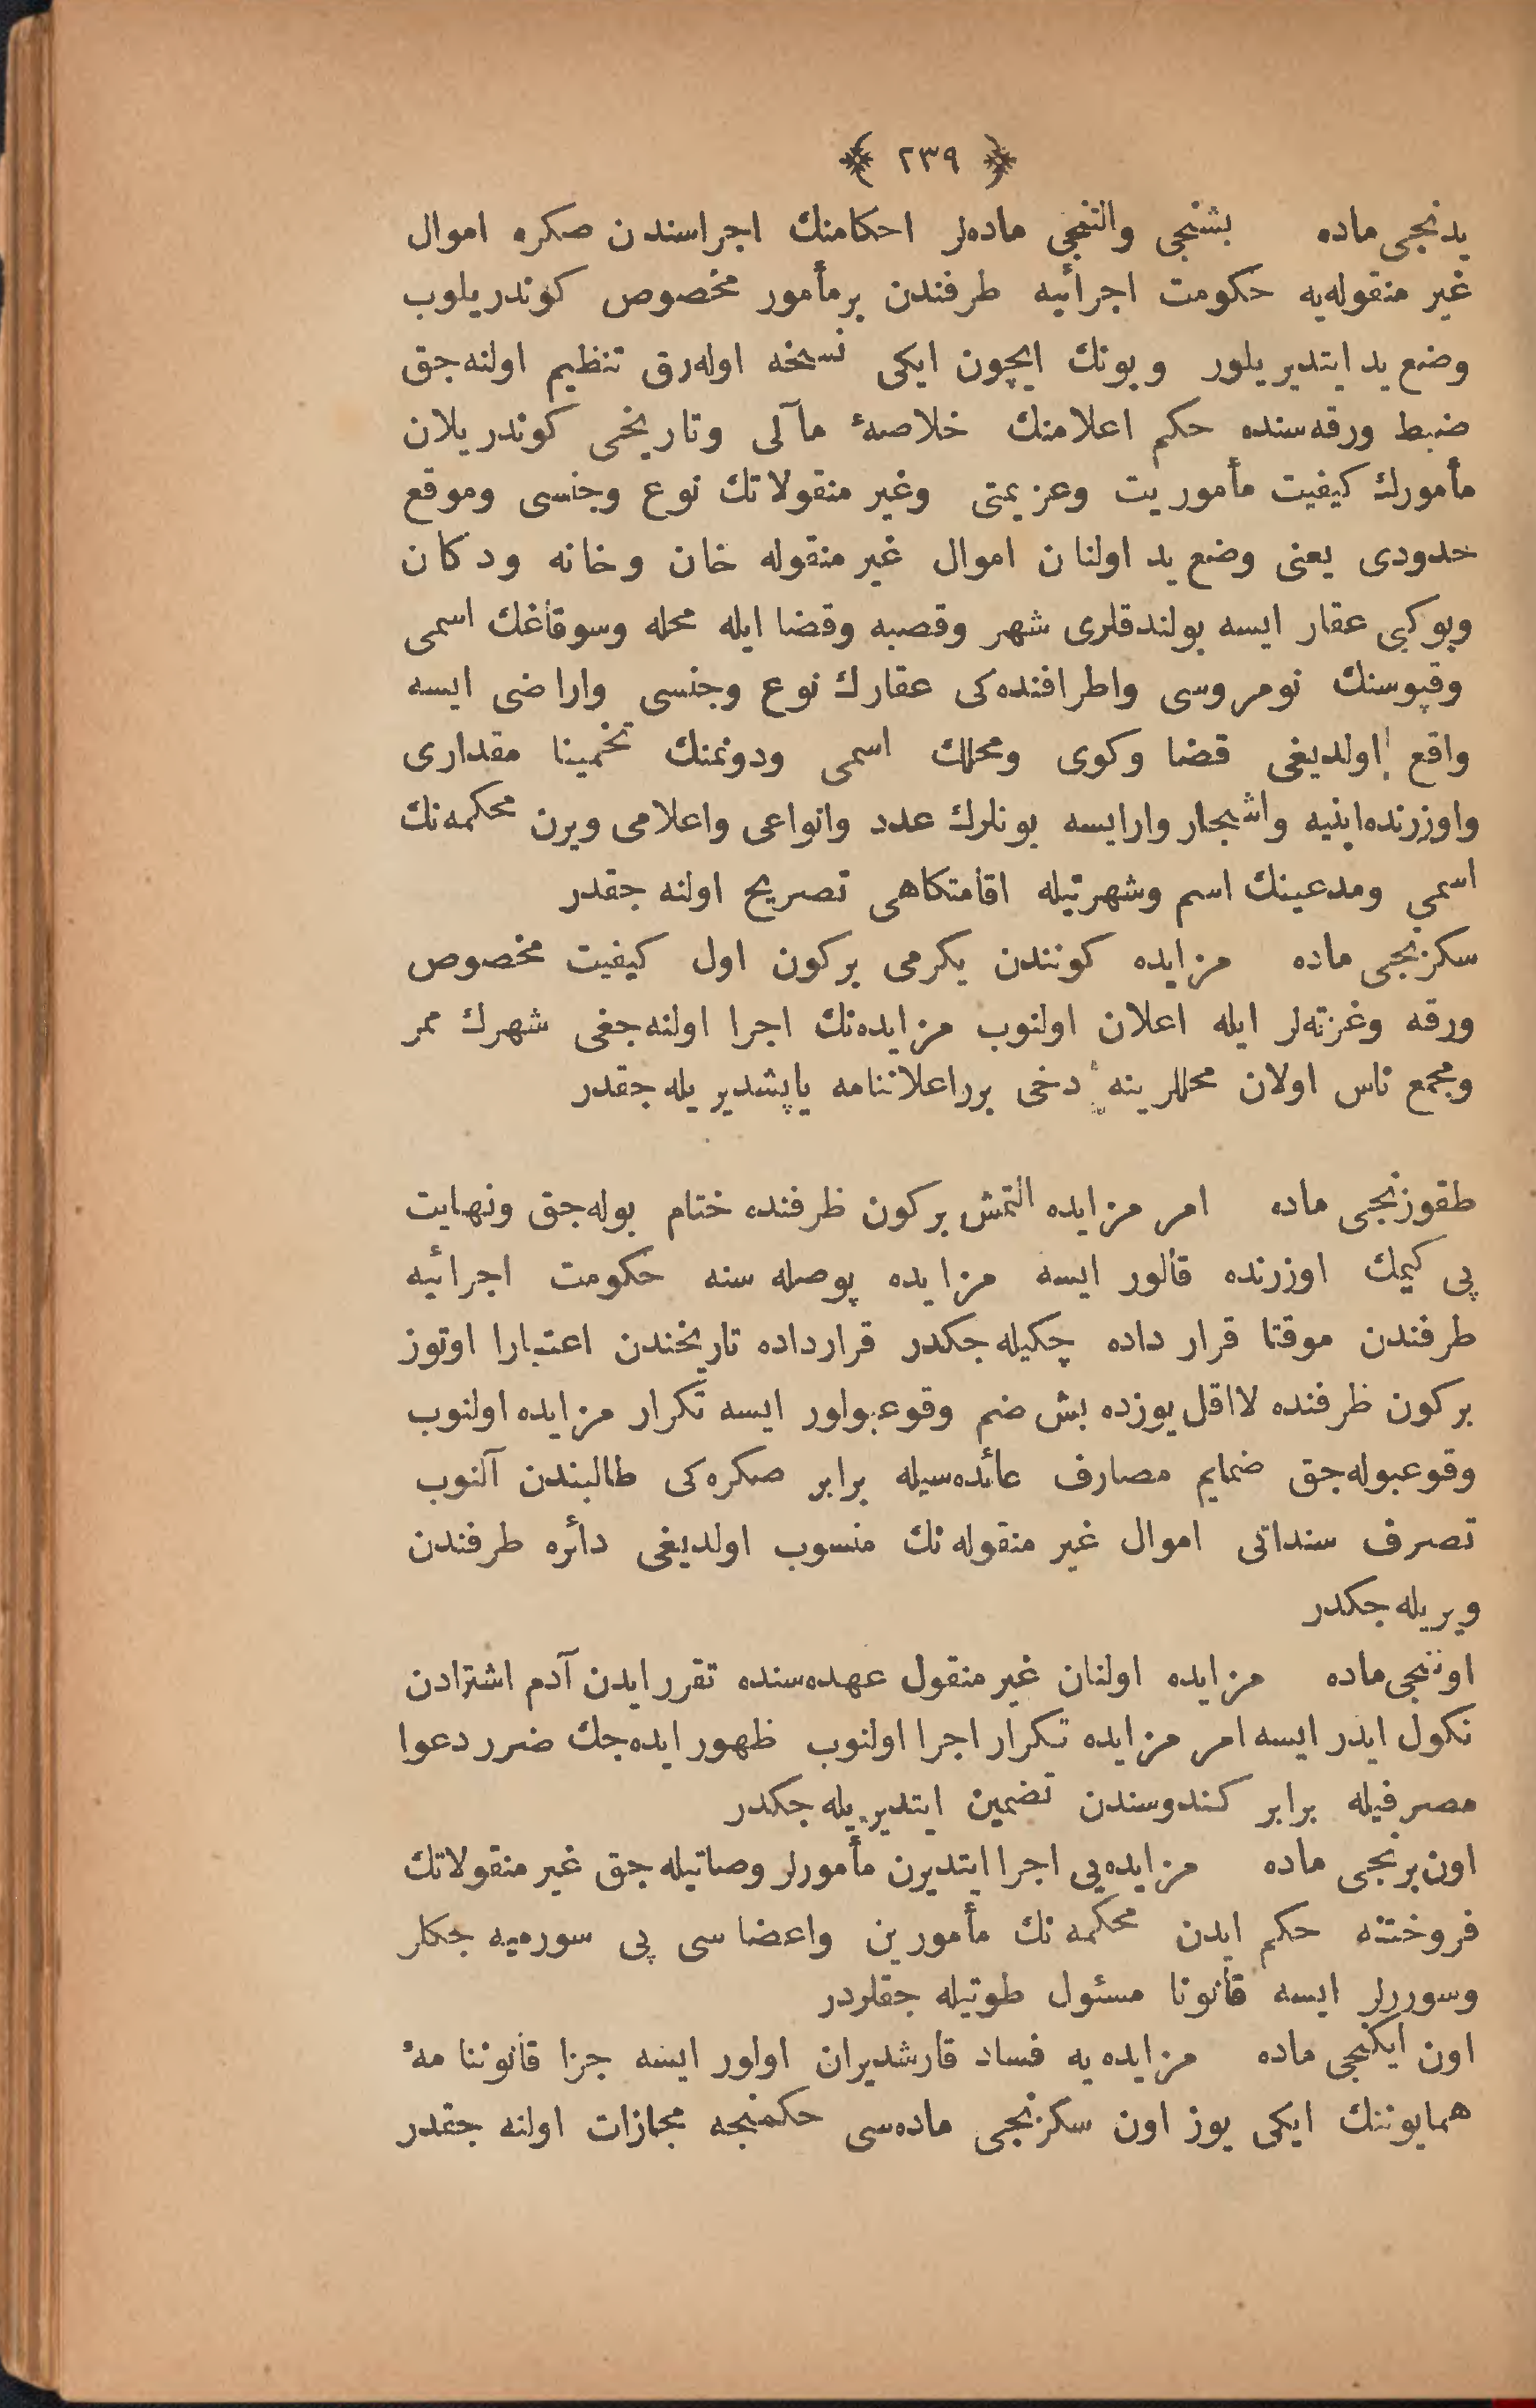 ﴿ ٢٣٩ ﴾
یدنجی ماده بشنجی والتنجی مادهلر احکامنك اجراسندن صکره اموال
غیر منقوله‌یه حکومت اجرائیه طرفندن برمأمور مخصوص کوندریلوب
وضع ید ایتدیریلور وبونك ایچون ایکی نسخه اوله‌رق تنظیم اولنه‌جق
ضبط ورقه‌سنده حکم اعلامنك خلاصهٔ مآلی وتاریخی کوندریلان
مأمورك کیفیت مأموریت وعزیمتی وغیر منقولاتك نوع وجنسی وموقع
حدودی یعنی وضع ید اولنان اموال غیر منقوله خان وخانه ودکان
وبوکبی عقار ایسه بولندقلری شهر وقصبه وقضا ایله محله وسوقاغك اسمی
وقپوسنك نومروسی واطرافنده‌کی عقارك نوع وجنسی واراضی ایسه
واقع اولدیغی قضا وکوی ومحلك اسمی ودونمنك تخمینا مقداری
واوزرنده‌ابنیه واشجار وارایسه بونلرك عدد وانواعی واعلامی ویرن محکمه‌نك
اسمی ومدعینك اسم وشهرتیله اقامتکاهی تصریح اولنه جقدر
سکزنجی ماده مزایده کونندن یکرمی برکون اول کیفیت مخصوص
ورقه وغزته‌لر ایله اعلان اولنوب مزایده‌نك اجرا اولنه‌جغی شهرك ممر
ومجمع ناس اولان محللرینه دخی برراعلاننامه یاپشدیریله‌جقدر
طقوزنجی ماده امر مزایده التمش برکون ظرفنده ختام بوله‌جق ونهایت
پی کیمك اوزرنده قالور ایسه مزایده پوصله سنه حکومت اجرائیه
طرفندن موقتا قرار داده چکیله‌جکدر قرارداده تاریخندن اعتبارا اوتوز
برکون ظرفنده لااقل یوزده بش ضم وقوعبولور ایسه تکرار مزایده اولنوب
وقوعبوله‌جق ضمایم مصارف عائده‌سیله برابر صکره‌کی طالبندن آلنوب
تصرف سنداتی اموال غیر منقوله نك منسوب اولدیغی دائره طرفندن
ویریله‌جکدر
اوننجی ماده مزایده اولنان غیر منقول عهده‌سنده تقرر ایدن آدم اشترادن
نکول ایدر ایسه امر مزایده تکرار اجرا اولنوب ظهور ایده‌جك ضرر دعوا
مصرفیله برابر کندوسندن تضمین ایتدیریله‌جکدر
اون‌برنجی ماده مزایده‌یی اجرا ایتدیرن مأمورلر وصاتیله‌جق غیر منقولاتك
فروختنه حکم ایدن محکمه نك مأمورین واعضاسی پی سورمیه جکلر
وسوررلر ایسه قانونا مسئول طوتیله جقلردر
اون ایکنجی ماده مزایده یه فساد قارشدیران اولور ایسه جزا قانوننامهٔ
همایوننك ایکی یوز اون سکزنجی ماده‌سی حکمنجه مجازات اولنه جقدر